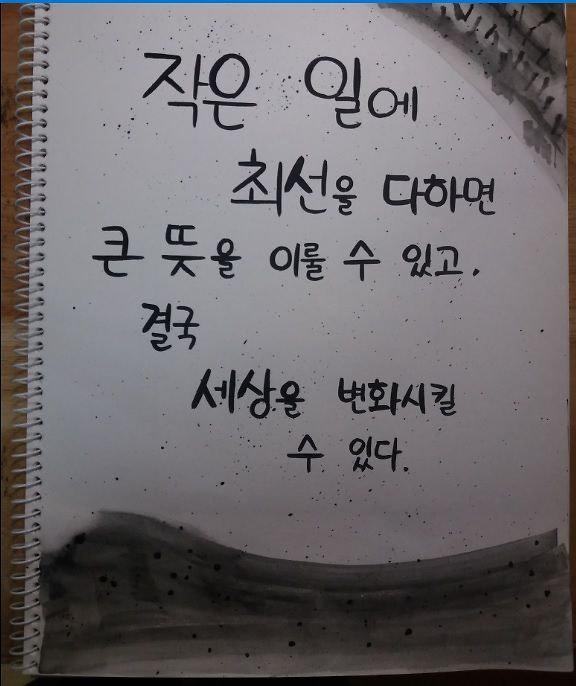 작은 일에
최선을 다하면
큰 뜻을 이룰 수 있고.
결국
세상을 변화시킬
수 있다.